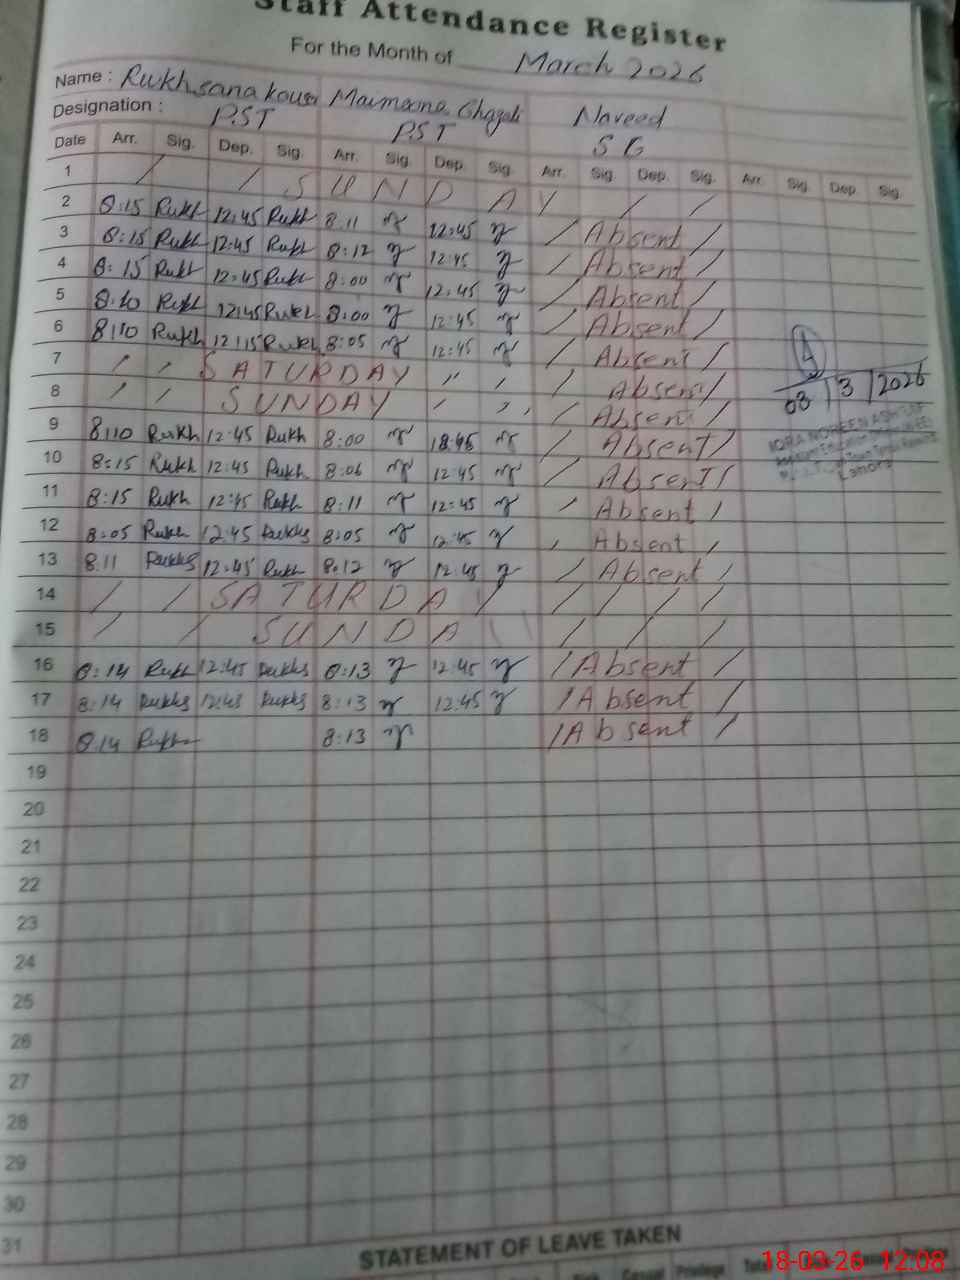 Staff Attendance Register
For the Month of March 2026
Name : Rukhsana kousar Maimoona Ghazali Naveed
Designation : P.ST P.ST S G
Date Arr. Sig. Dep. Sig. Arr. Sig. Dep. Sig. Arr. Sig. Dep. Sig. Arr. Sig. Dep. Sig.
1 / / S U N D A Y / /
2 8:15 Rukh 12:45 Rukh 8:11 12:45 / Absent /
3 8:15 Rukh 12:45 Rukh 8:12 12:45 / Absent /
4 8:15 Rukh 12:45 Rukh 8:00 12:45 / Absent /
5 8:10 Rukh 12:45 Rukh 8:00 12:45 / Absent /
6 8:10 Rukh 12:15 Rukh 8:05 12:45 / Absent /
7 SATURDAY / Absent /
8 SUNDAY / Absent /
03/3/2026
IQRA NOREEN ASHRAF
Lahore
9 8:10 Rukh 12:45 Rukh 8:00 12:45 / Absent /
10 8:15 Rukh 12:45 Rukh 8:06 12:45 / Absent /
11 8:15 Rukh 12:45 Rukh 8:11 12:45 / Absent /
12 8:05 Rukh 12:45 Rukhs 8:05 12:45 / Absent /
13 8:11 Rukhs 12:45 Rukh 8:12 12:45 / Absent /
14 / / SATURDAY / / / /
15 / / SUNDAY / / /
16 8:14 Rukh 12:45 Rukhs 8:13 12:45 / Absent /
17 8:14 Rukhs 12:45 Rukhs 8:13 12:45 / Absent /
18 8:14 Rukhs 8:13 / Absent /
19
20
21
22
23
24
25
26
27
28
29
30
31
STATEMENT OF LEAVE TAKEN
Casual Privilege
18-03-26 12:08